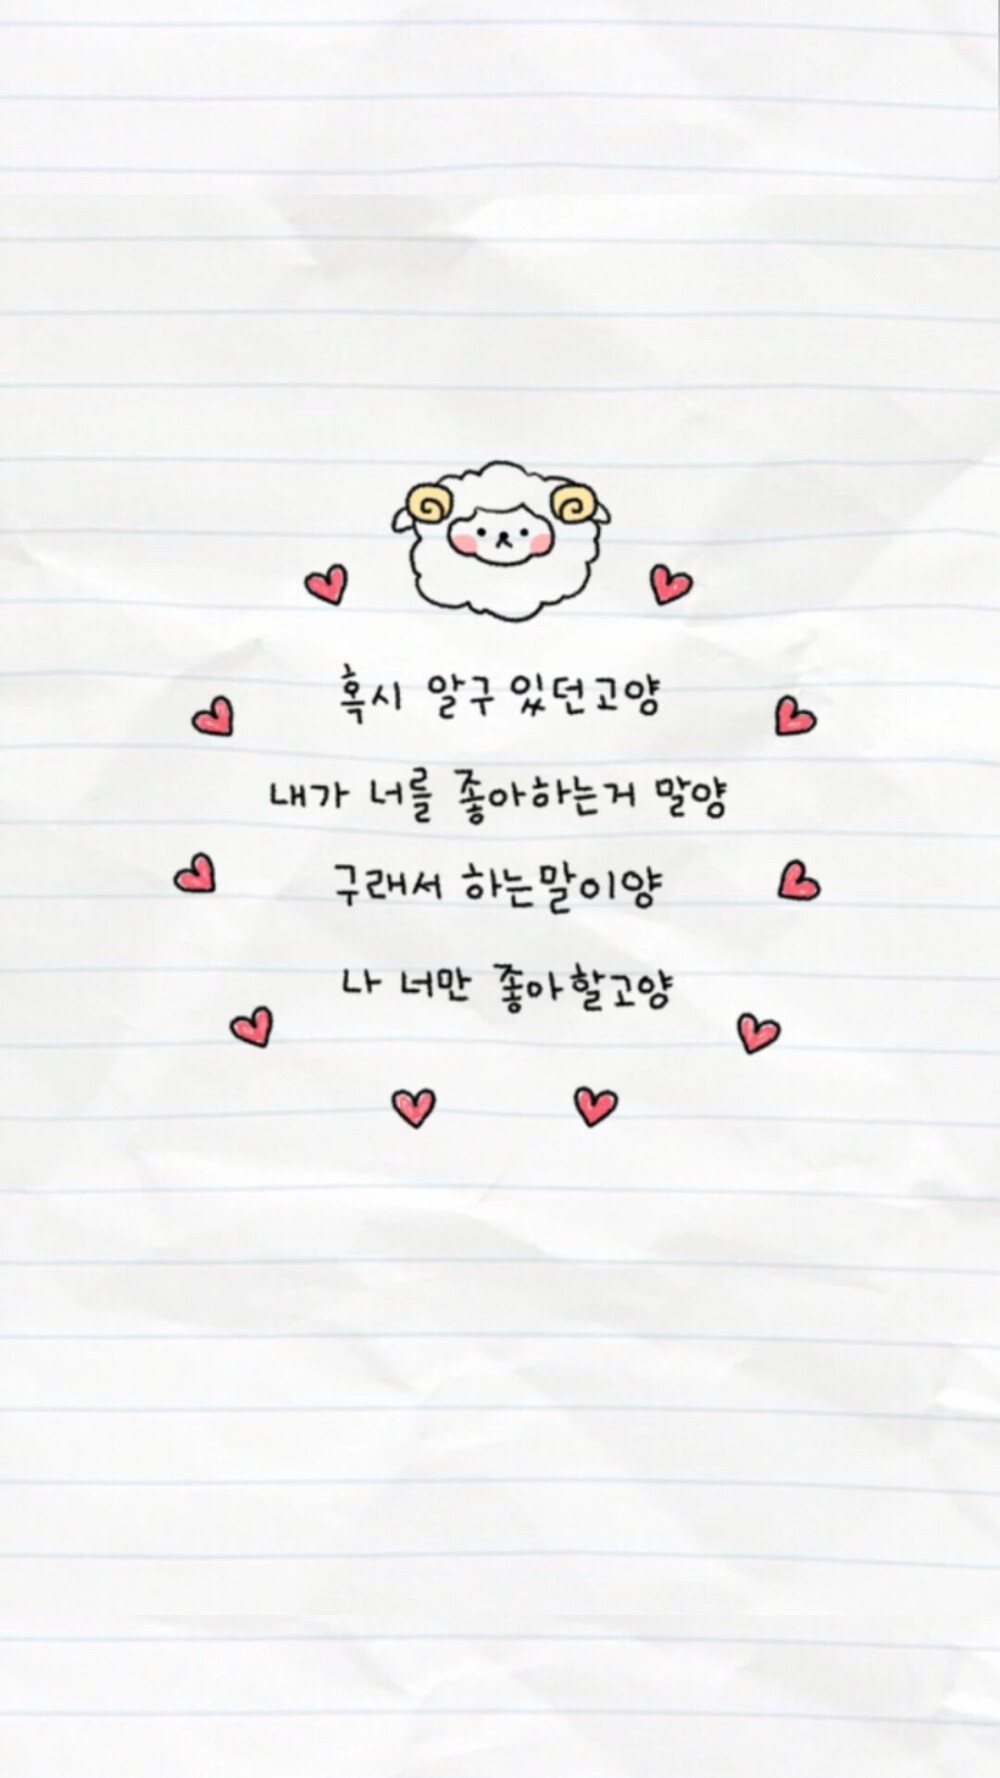 혹시 알구 있던고양
내가 너를 좋아하는거 말양
구래서 하는말이양
나 너만 좋아할고양